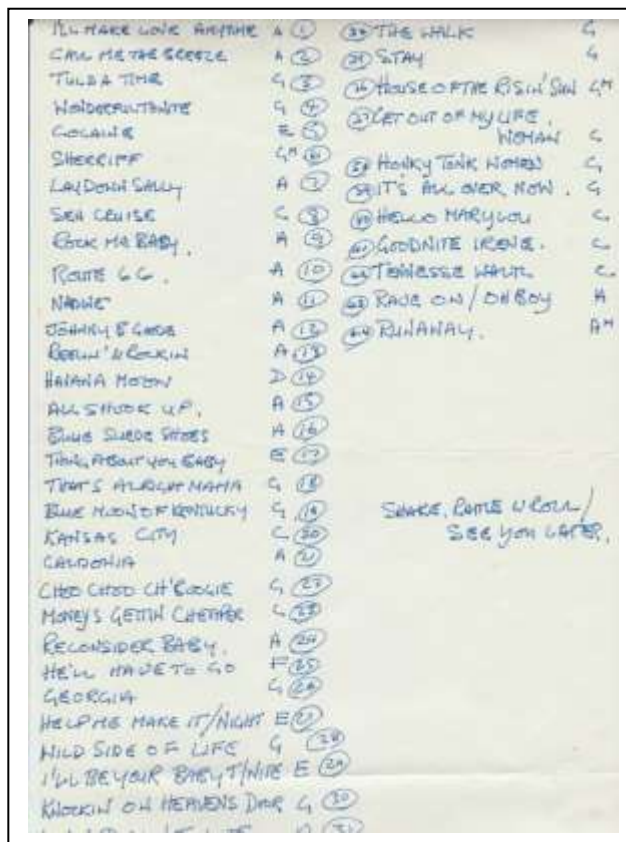 I'LL MAKE LOVE ANYTIME A 1
CALL ME THE BREEZE A 2
TULSA TIME G 3
WONDERFUL TONITE G 4
COCAINE E 5
SHERRIFF GM 6
LAY DOWN SALLY A 7
SEA CRUISE C 8
ROCK ME BABY. A 9
ROUTE 66. A 10
NADINE A 11
JOHNNY B GOODE A 12
REELIN' N ROCKIN A 13
HAVANA MOON D 14
ALL SHOOK UP. A 15
BLUE SUEDE SHOES A 16
THING ABOUT YOU BABY E 17
THAT'S ALRIGHT MAMA G 18
BLUE MOON OF KENTUCKY G 19
KANSAS CITY C 20
CALDONIA A 21
CHOO CHOO CH'BOOGIE G 22
MONEY'S GETTIN CHEAPER G 23
RECONSIDER BABY. A 24
HE'LL HAVE TO GO F 25
GEORGIA G 26
HELP ME MAKE IT/NIGHT E 27
WILD SIDE OF LIFE G 28
I'LL BE YOUR BABY T/NITE E 29
KNOCKIN ON HEAVENS DOOR G 30
31
THE WALK G
STAY G
HOUSE OF THE RISIN' SUN GM
GET OUT OF MY LIFE,
WOMAN G
HONKY TONK WOMEN G
IT'S ALL OVER NOW. G
HELLO MARY LOU C
GOODNITE IRENE. C
TENNESSE WALTZ C.
RAVE ON/OH BOY A
RUNAWAY. AM
SHAKE, RATTLE N ROLL/
SEE YOU LATER,